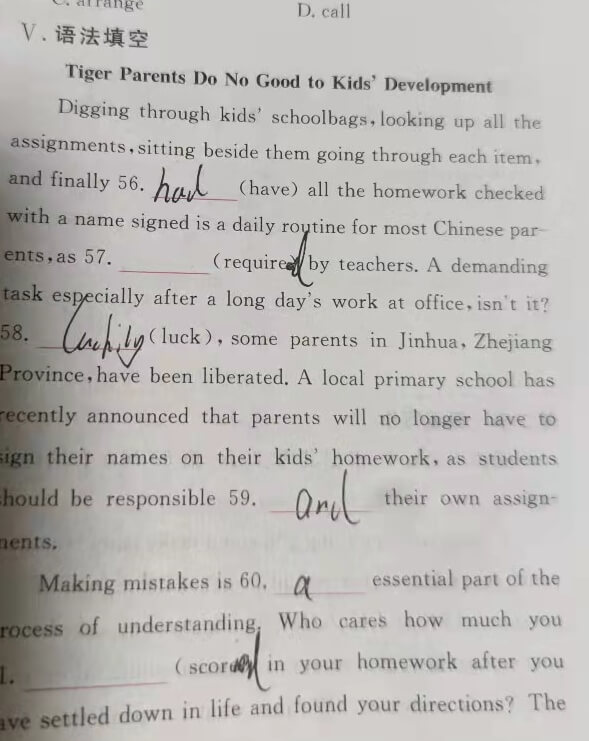 C. arrange D. call
V. 语法填空
Tiger Parents Do No Good to Kids' Development
Digging through kids' schoolbags, looking up all the
assignments, sitting beside them going through each item,
and finally 56. had (have) all the homework checked
with a name signed is a daily routine for most Chinese par-
ents, as 57. ______ (required by teachers. A demanding
task especially after a long day's work at office, isn't it?
58. Luckily (luck), some parents in Jinhua, Zhejiang
Province, have been liberated. A local primary school has
recently announced that parents will no longer have to
sign their names on their kids' homework, as students
should be responsible 59. and their own assign-
ments.
Making mistakes is 60. a essential part of the
rocess of understanding. Who cares how much you
1. ______ (scored in your homework after you
ave settled down in life and found your directions? The